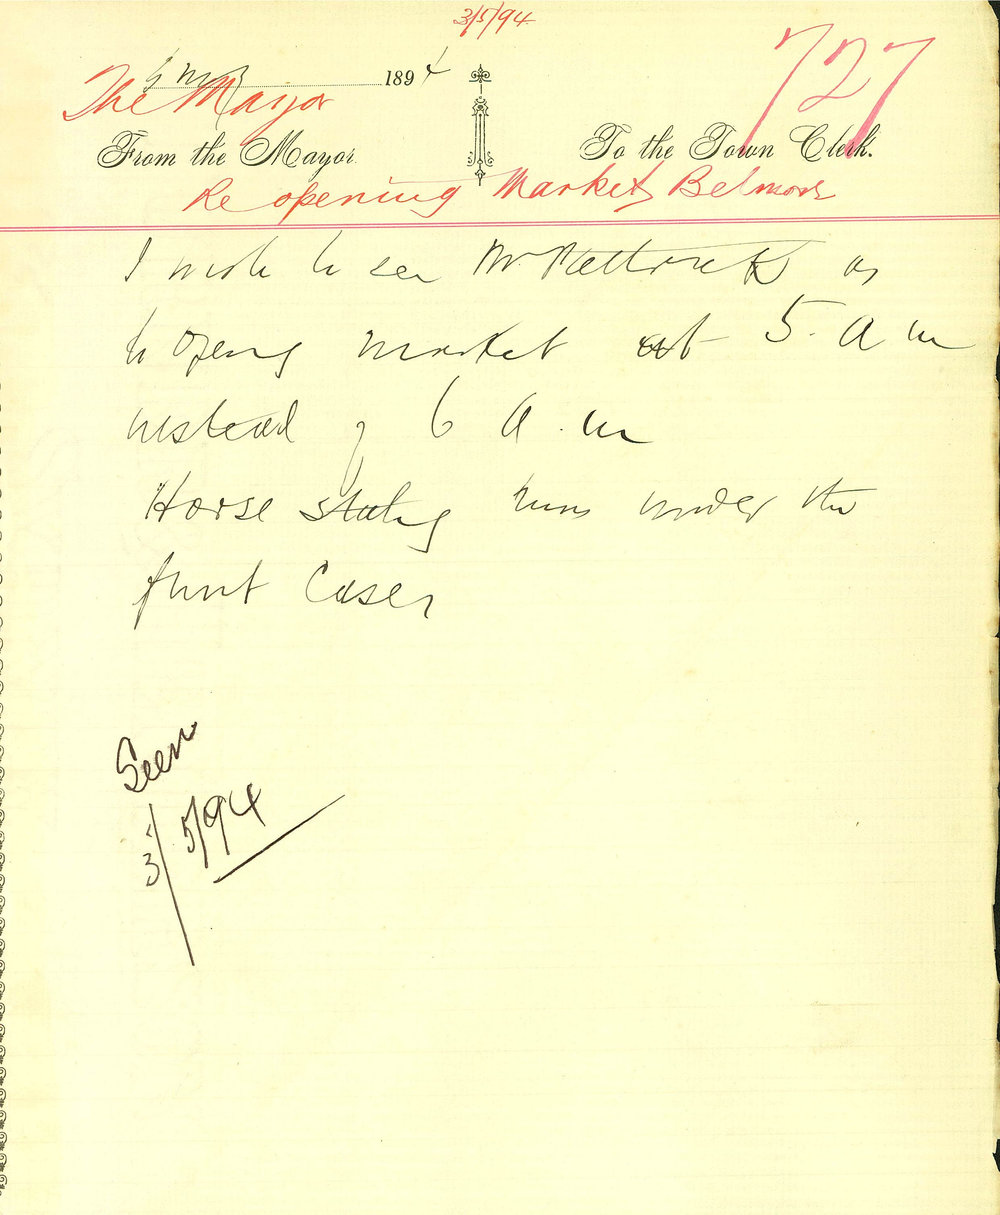 3/5/94
727
1894
The Mayor
From the Mayor
To the Town Clerk.
Re opening Market, Belmore
I wish to see Mr as
to opening market at 5. a m
instead of 6 a.m
Horse under the
Cases
Seen
3/5/94